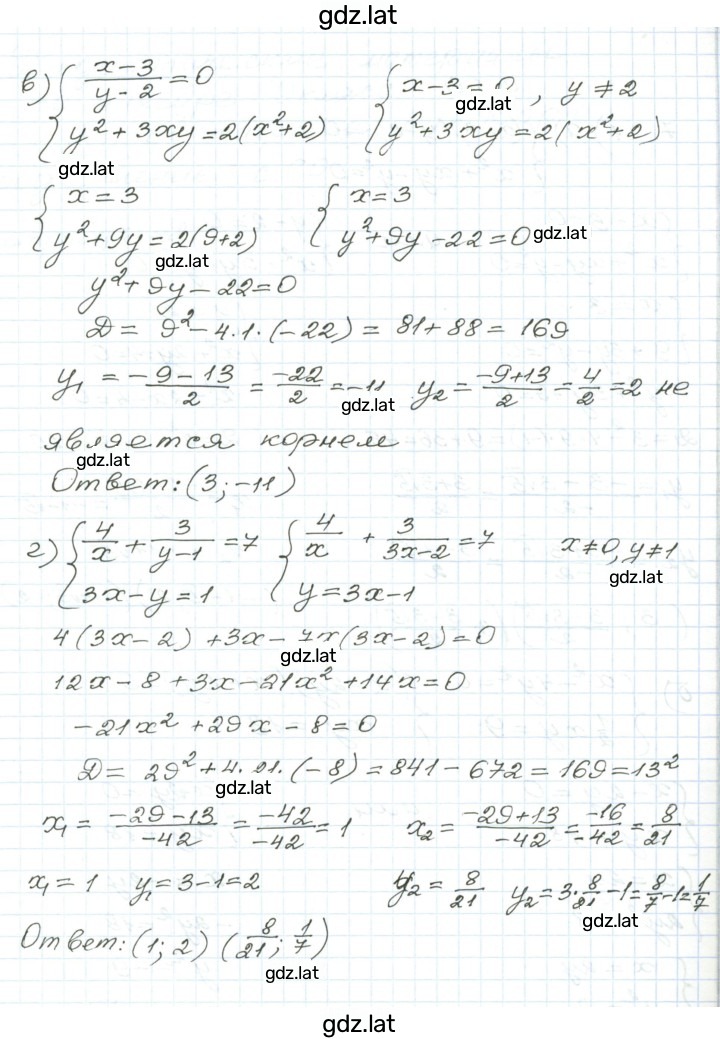 gdz.lat
в) { (x-3)/(y-2) = 0   { x-3 = 0 , y ≠ 2
{ y² + 3xy = 2(x²+2)   { y² + 3xy = 2(x²+2)
gdz.lat
gdz.lat
{ x = 3   { x = 3
{ y² + 9y = 2(9+2)   { y² + 9y - 22 = 0 gdz.lat
gdz.lat
y² + 9y - 22 = 0
Д = 9² - 4·1·(-22) = 81 + 88 = 169
y₁ = (-9-13)/2 = -22/2 = -11   y₂ = (-9+13)/2 = 4/2 = 2 не
gdz.lat
является корнем
gdz.lat
Ответ: (3; -11)
г) { 4/x + 3/(y-1) = 7   { 4/x + 3/(3x-2) = 7   x ≠ 0, y ≠ 1
{ 3x - y = 1   { y = 3x - 1
gdz.lat
4(3x-2) + 3x - 7x(3x-2) = 0
gdz.lat
12x - 8 + 3x - 21x² + 14x = 0
-21x² + 29x - 8 = 0
Д = 29² + 4·21·(-8) = 841 - 672 = 169 = 13²
gdz.lat
x₁ = (-29-13)/(-42) = -42/-42 = 1   x₂ = (-29+13)/(-42) = -16/-42 = 8/21
x₁ = 1   y₁ = 3-1 = 2   y₂ = 8/21   y₂ = 3·8/21 - 1 = 8/7 - 1 = 1/7
gdz.lat
Ответ: (1; 2) (8/21; 1/7)
gdz.lat
gdz.lat